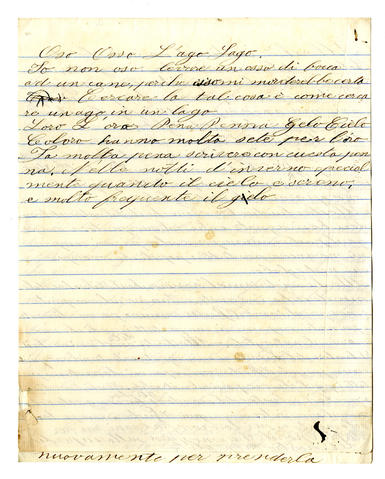 Oso Osso L'ago Lago.
Io non oso levare un osso di bocca
ad un cane, perche mi morderebbe certa
Cercare la tale cosa è come cerca
re un ago in un lago.
Loro L'oro Pena Penna Gelo Cielo
Coloro hanno molta sete per l'oro
Fa molta pena scrivere con questa pen
na. Nelle notti d'inverno special
mente quando il cielo è sereno,
e molto frequente il gelo
nuovamente per prenderla